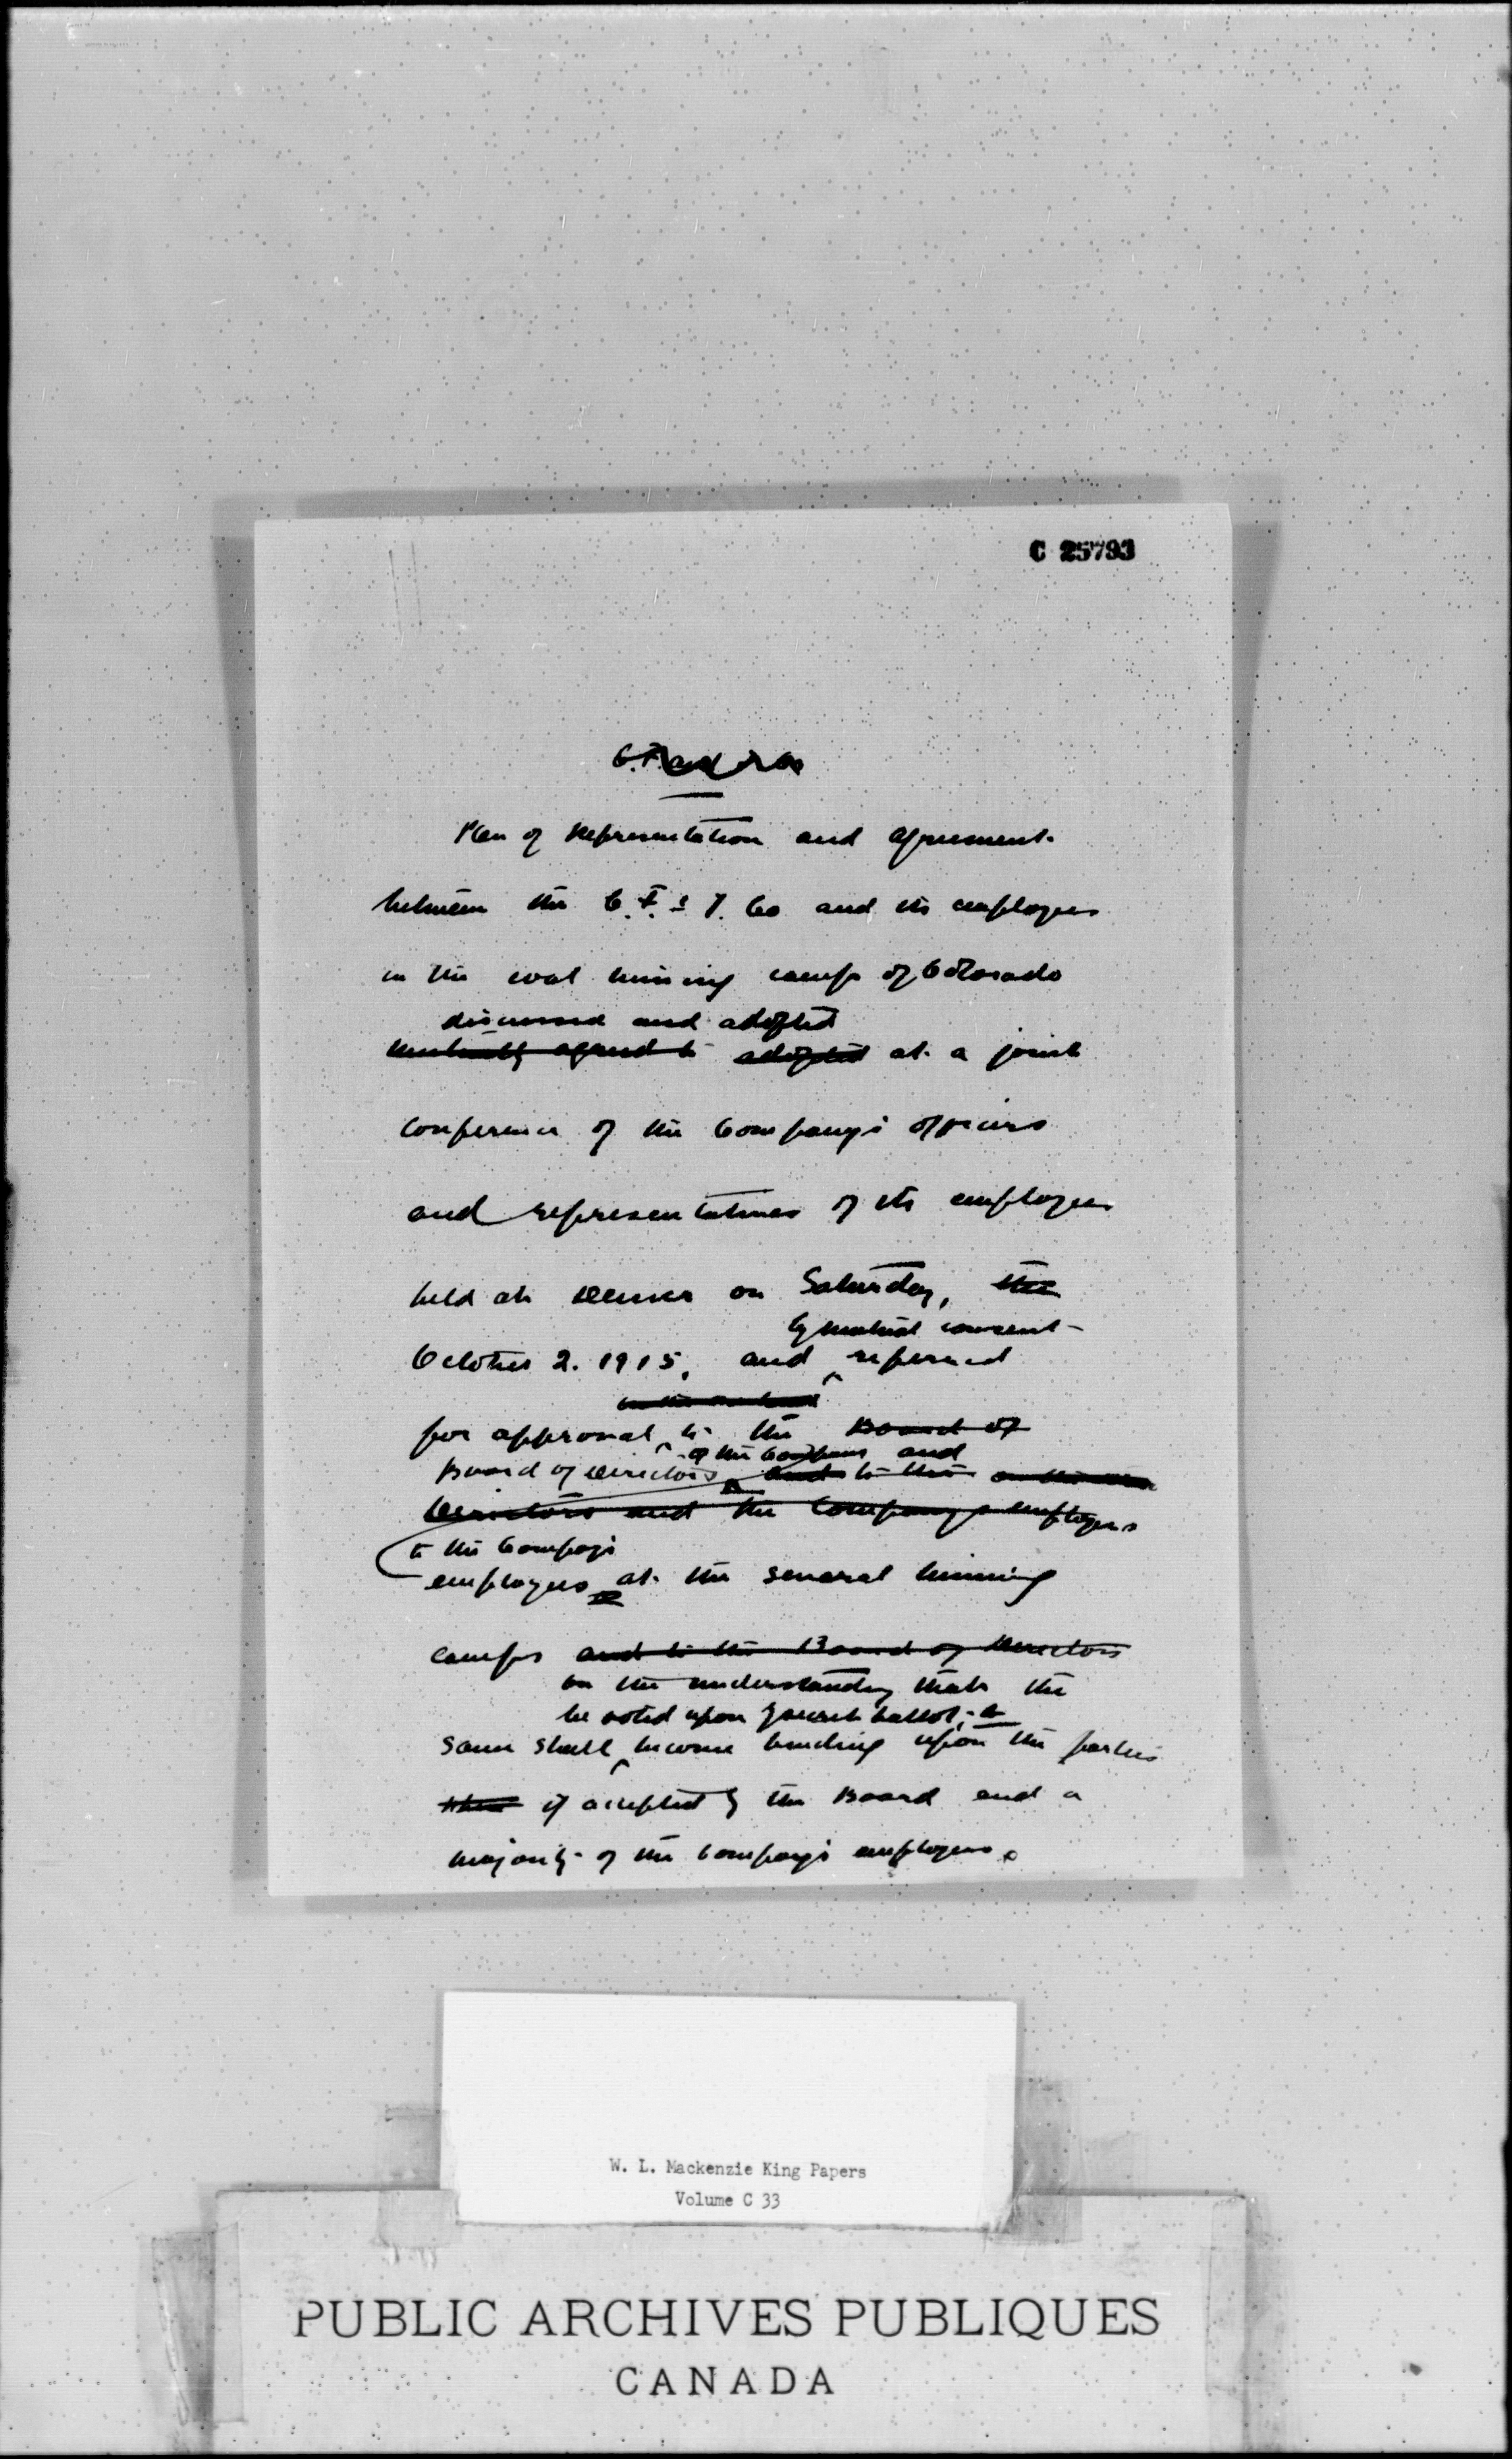 C 25793
Plan of Representation and Agreement
between the C. F. & I. Co and its employees
in the coal mining camps of Colorado
discussed and adopted
mutually agreed to adopted at a joint
conference of the Company's officers
and representatives of its employees
held at Denver on Saturday, the
by mutual consent
October 2. 1915, and referred
for approval to the Board of
of the Company and
Board of Directors and to the
Directors and the Company's employees
to the Company's
employees at the several mining
camps and to the Board of Directors
on the understanding that the
be voted upon by secret ballot, &
same shall become binding upon the parties
when if accepted by the Board and a
majority of the Company's employees.
W. L. Mackenzie King Papers
Volume C 33
PUBLIC ARCHIVES PUBLIQUES
CANADA